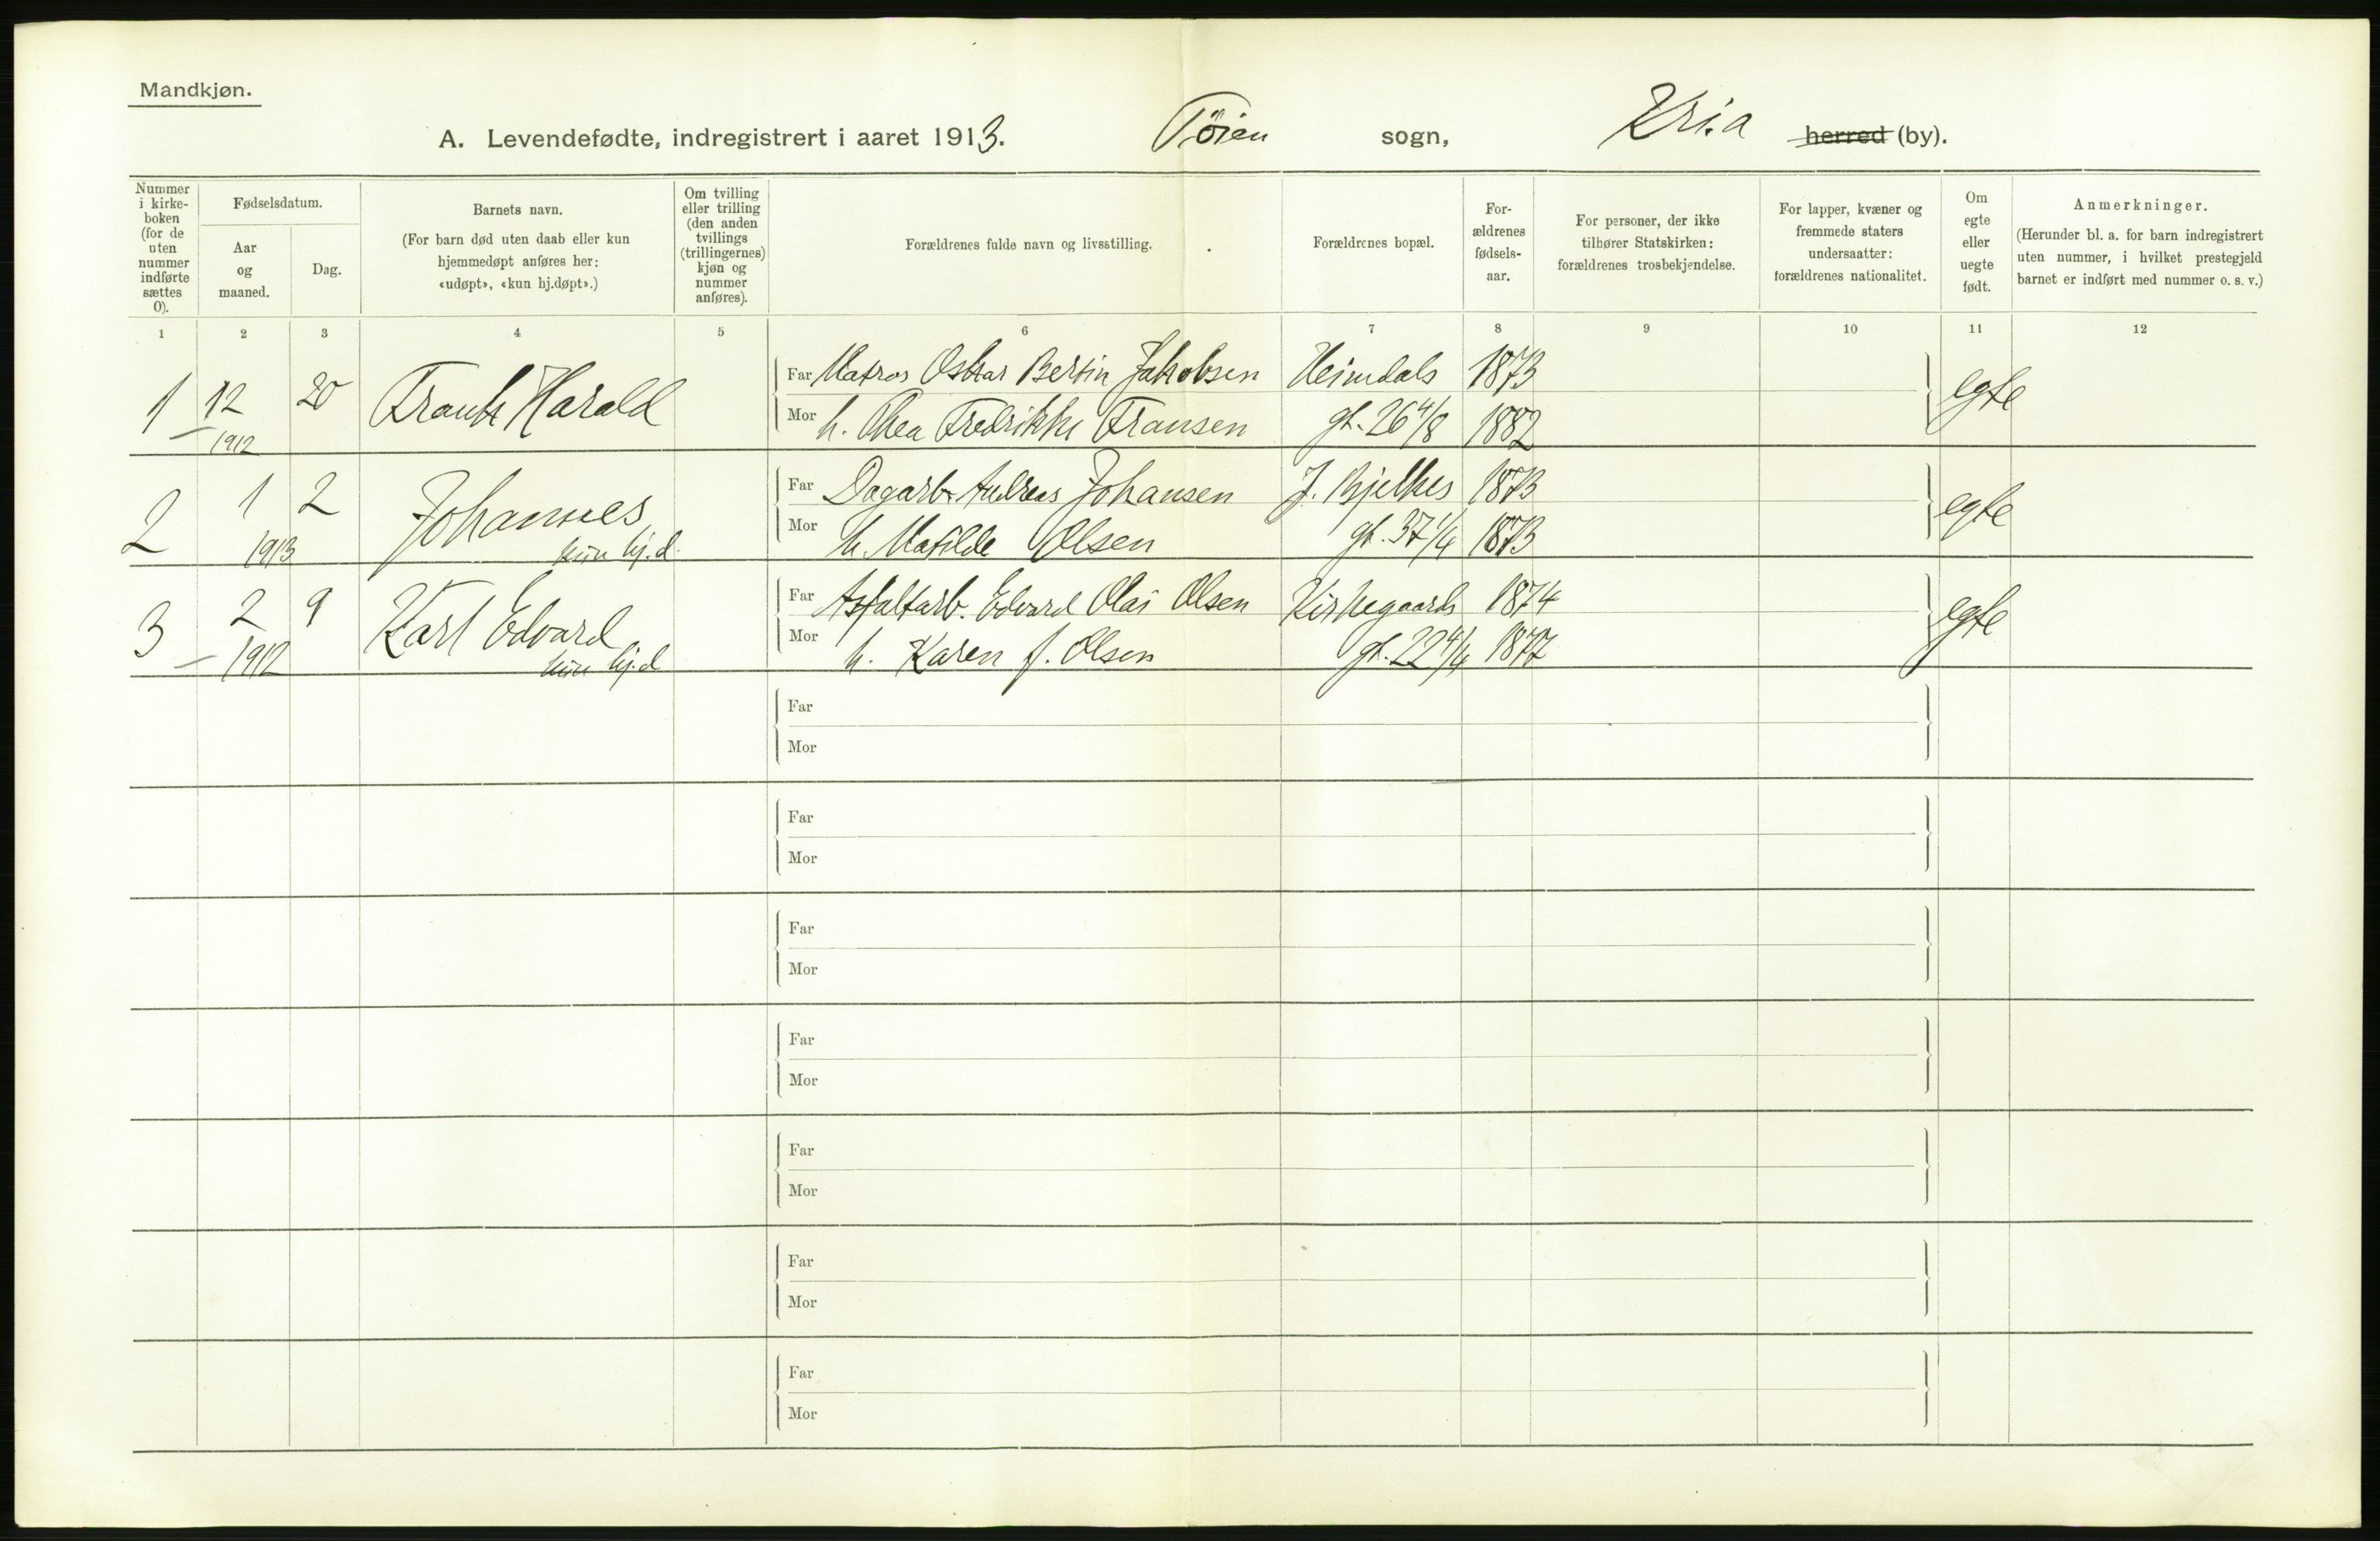 Mandkjøn.
A. Levendefødte, indregistrert i aaret 1913. Tøien sogn, Kria herred (by).
Nummer i kirke-boken (for de uten nummer indførte sættes 0).
Fødselsdatum.
Aar og maaned.
Dag.
Barnets navn.
(For barn død uten daab eller kun hjemmedøpt anføres her: «udøpt», «kun hj.døpt».)
Om tvilling eller trilling (den anden tvillings (trillingernes) kjøn og nummer anføres).
Forældrenes fulde navn og livsstilling.
Forældrenes bopæl.
For-ældrenes fødsels-aar.
For personer, der ikke tilhører Statskirken: forældrenes trosbekjendelse.
For lapper, kvæner og fremmede staters undersaatter: forældrenes nationalitet.
Om egte eller uegte født.
Anmerkninger.
(Herunder bl. a. for barn indregistrert uten nummer, i hvilket prestegjeld barnet er indført med nummer o. s. v.)
1 2 3 4 5 6 7 8 9 10 11 12
1 12 20 Frantz Harald Far Matros Oskar Bertin Jakobsen Heimdals 1873 egte
1912 Mor h. Thea Fredrikke Fransen gt. 26 4/8 1882
2 1 2 Johannes Far Dagarb. Andreas Johansen J. Bjelkes 1873 egte
1913 kun hj.d. Mor h. Matilde Olsen gt. 37 1/4 1873
3 2 9 Karl Edvard Far Asfaltarb. Edvard Olai Olsen Kirkegaards 1874 egte
1912 kun hj.d Mor h. Karen f. Olsen gt. 22 4/4 1877
Far
Mor
Far
Mor
Far
Mor
Far
Mor
Far
Mor
Far
Mor
Far
Mor